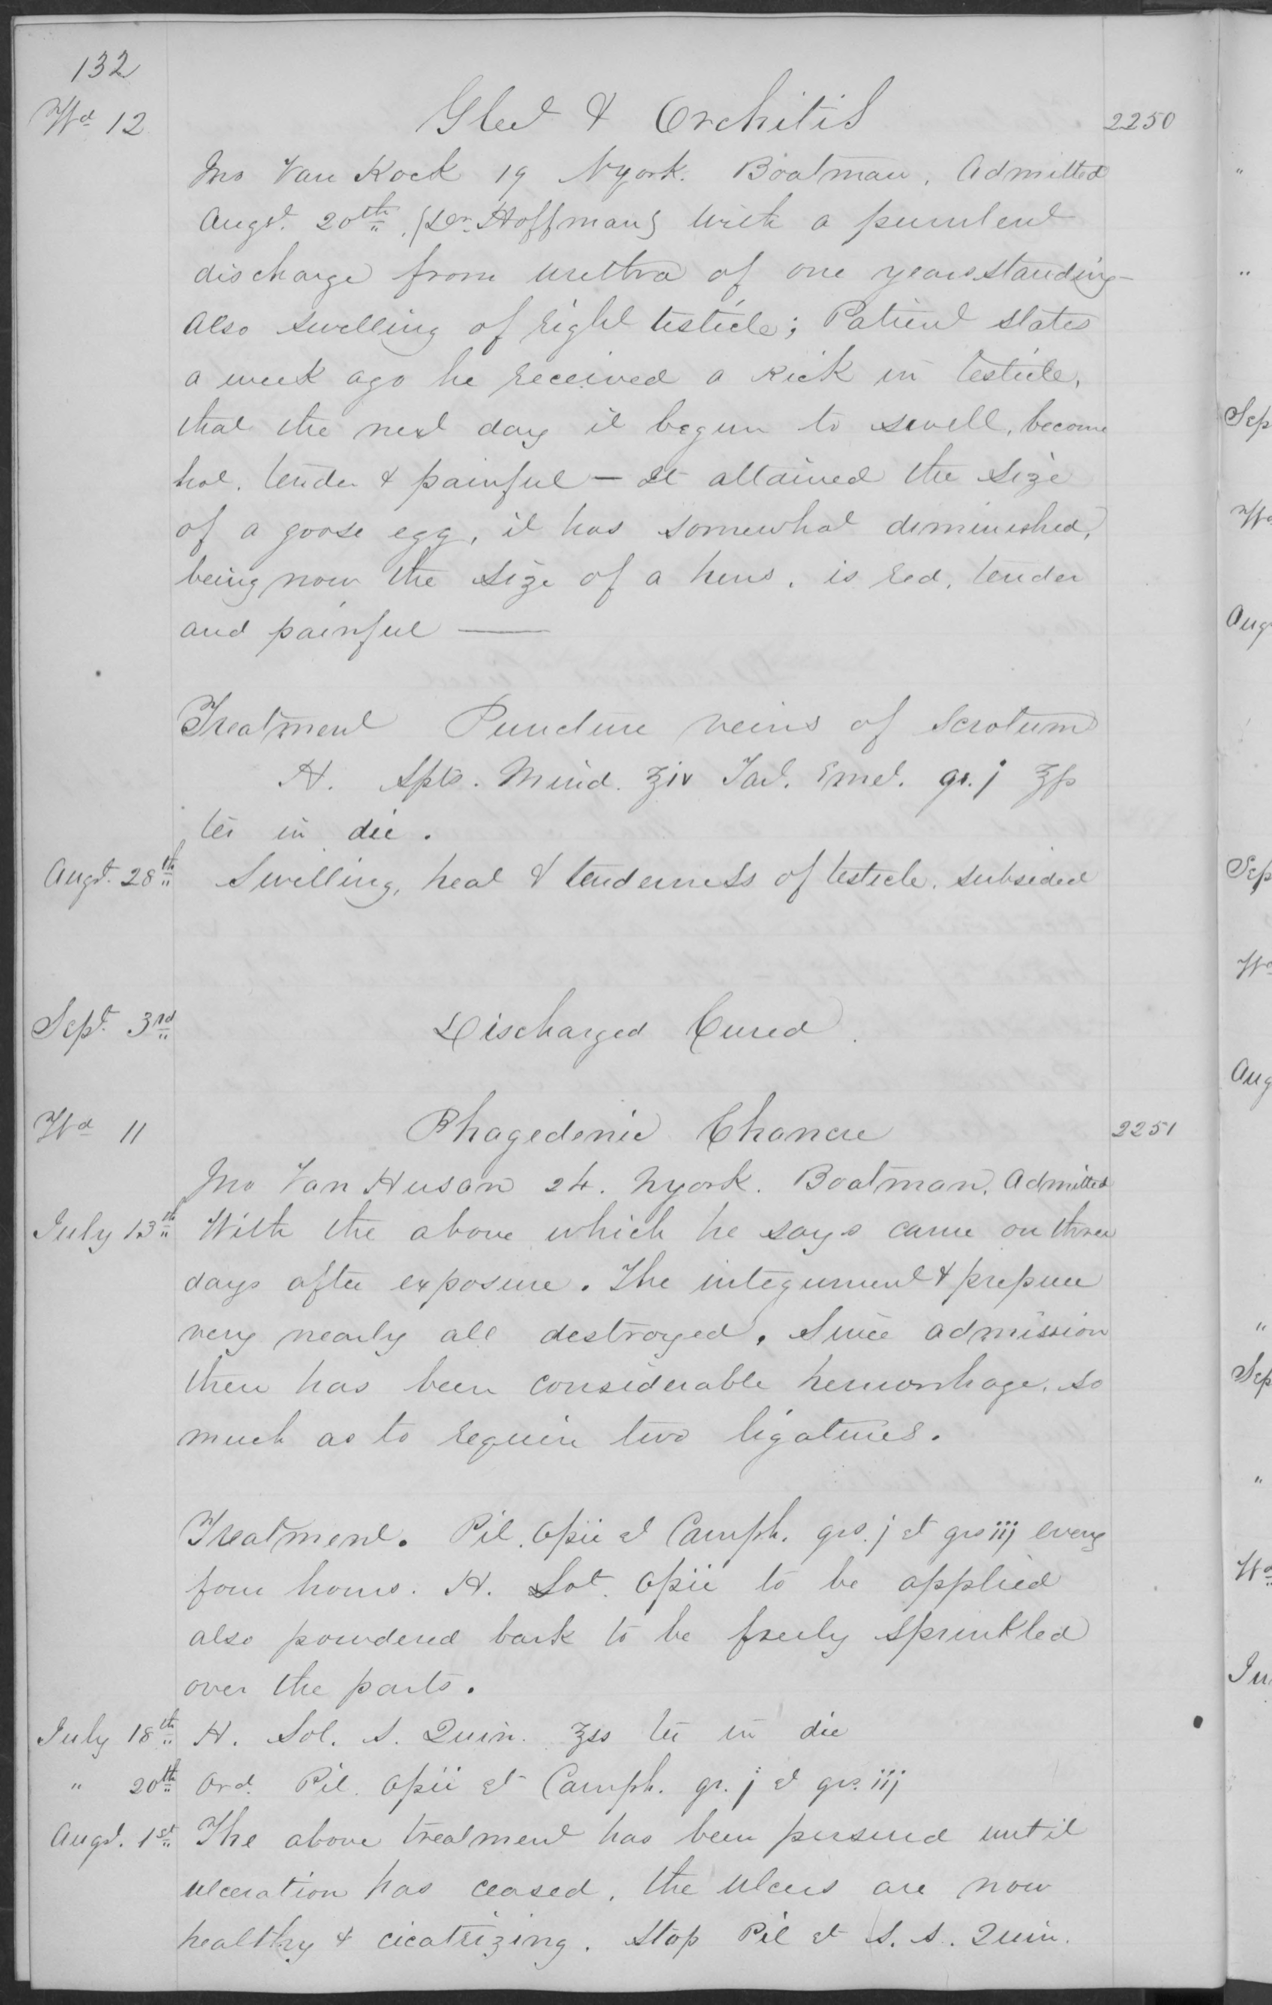 132
Wd 12 Gleet & Orchitis 2250
Jno Van Kock 19 Nyork. Boatman, Admitted
Augst. 20th, {Dr. Hoffman} With a purulent
discharge from urethra of one years standing
Also swelling of right testicle; Patient states
a week ago he received a kick in testicle,
that the next day it begun to swell, become
hot, tender & painful — It attained the size
of a goose egg, it has somewhat diminished,
being now the size of a hens, is red, tender
and painful —
Treatment Puncture veins of Scrotum
H. Spts. Mind. ʒiv Tart. Emet. gr. j ʒß
ter in die.
Augst. 28th Swelling, heat & tenderness of testicle, subsided
Sept. 3rd Discharged Cured.
Wd 11 Phagedenic Chancre 2251
Jno Van Husan 24. Nyork. Boatman, Admitted
July 13th With the above which he says came on three
days after exposure. The integument & prepuce
very nearly all destroyed. Since admission
there has been considerable hemorrhage, so
much as to require two ligatures.
Treatment. Pil. Opii et Camph. grs. j et grs iij every
four hours. H. Lot. Opii to be applied
also powdered bark to be freely sprinkled
over the parts.
July 18th H. Sol. S. Quin. ʒss ter in die
" 20th Ord. Pil. Opii et Camph. gr. j et grs. iij
Augst. 1st The above treatment has been persued until
ulceration has ceased, the ulcers are now
healthy & cicatrizing. Stop Pil et S. S. Quin.
Sep
Wd
Aug
Sep
Wd
Aug
"
Sep
"
Wd
Ju